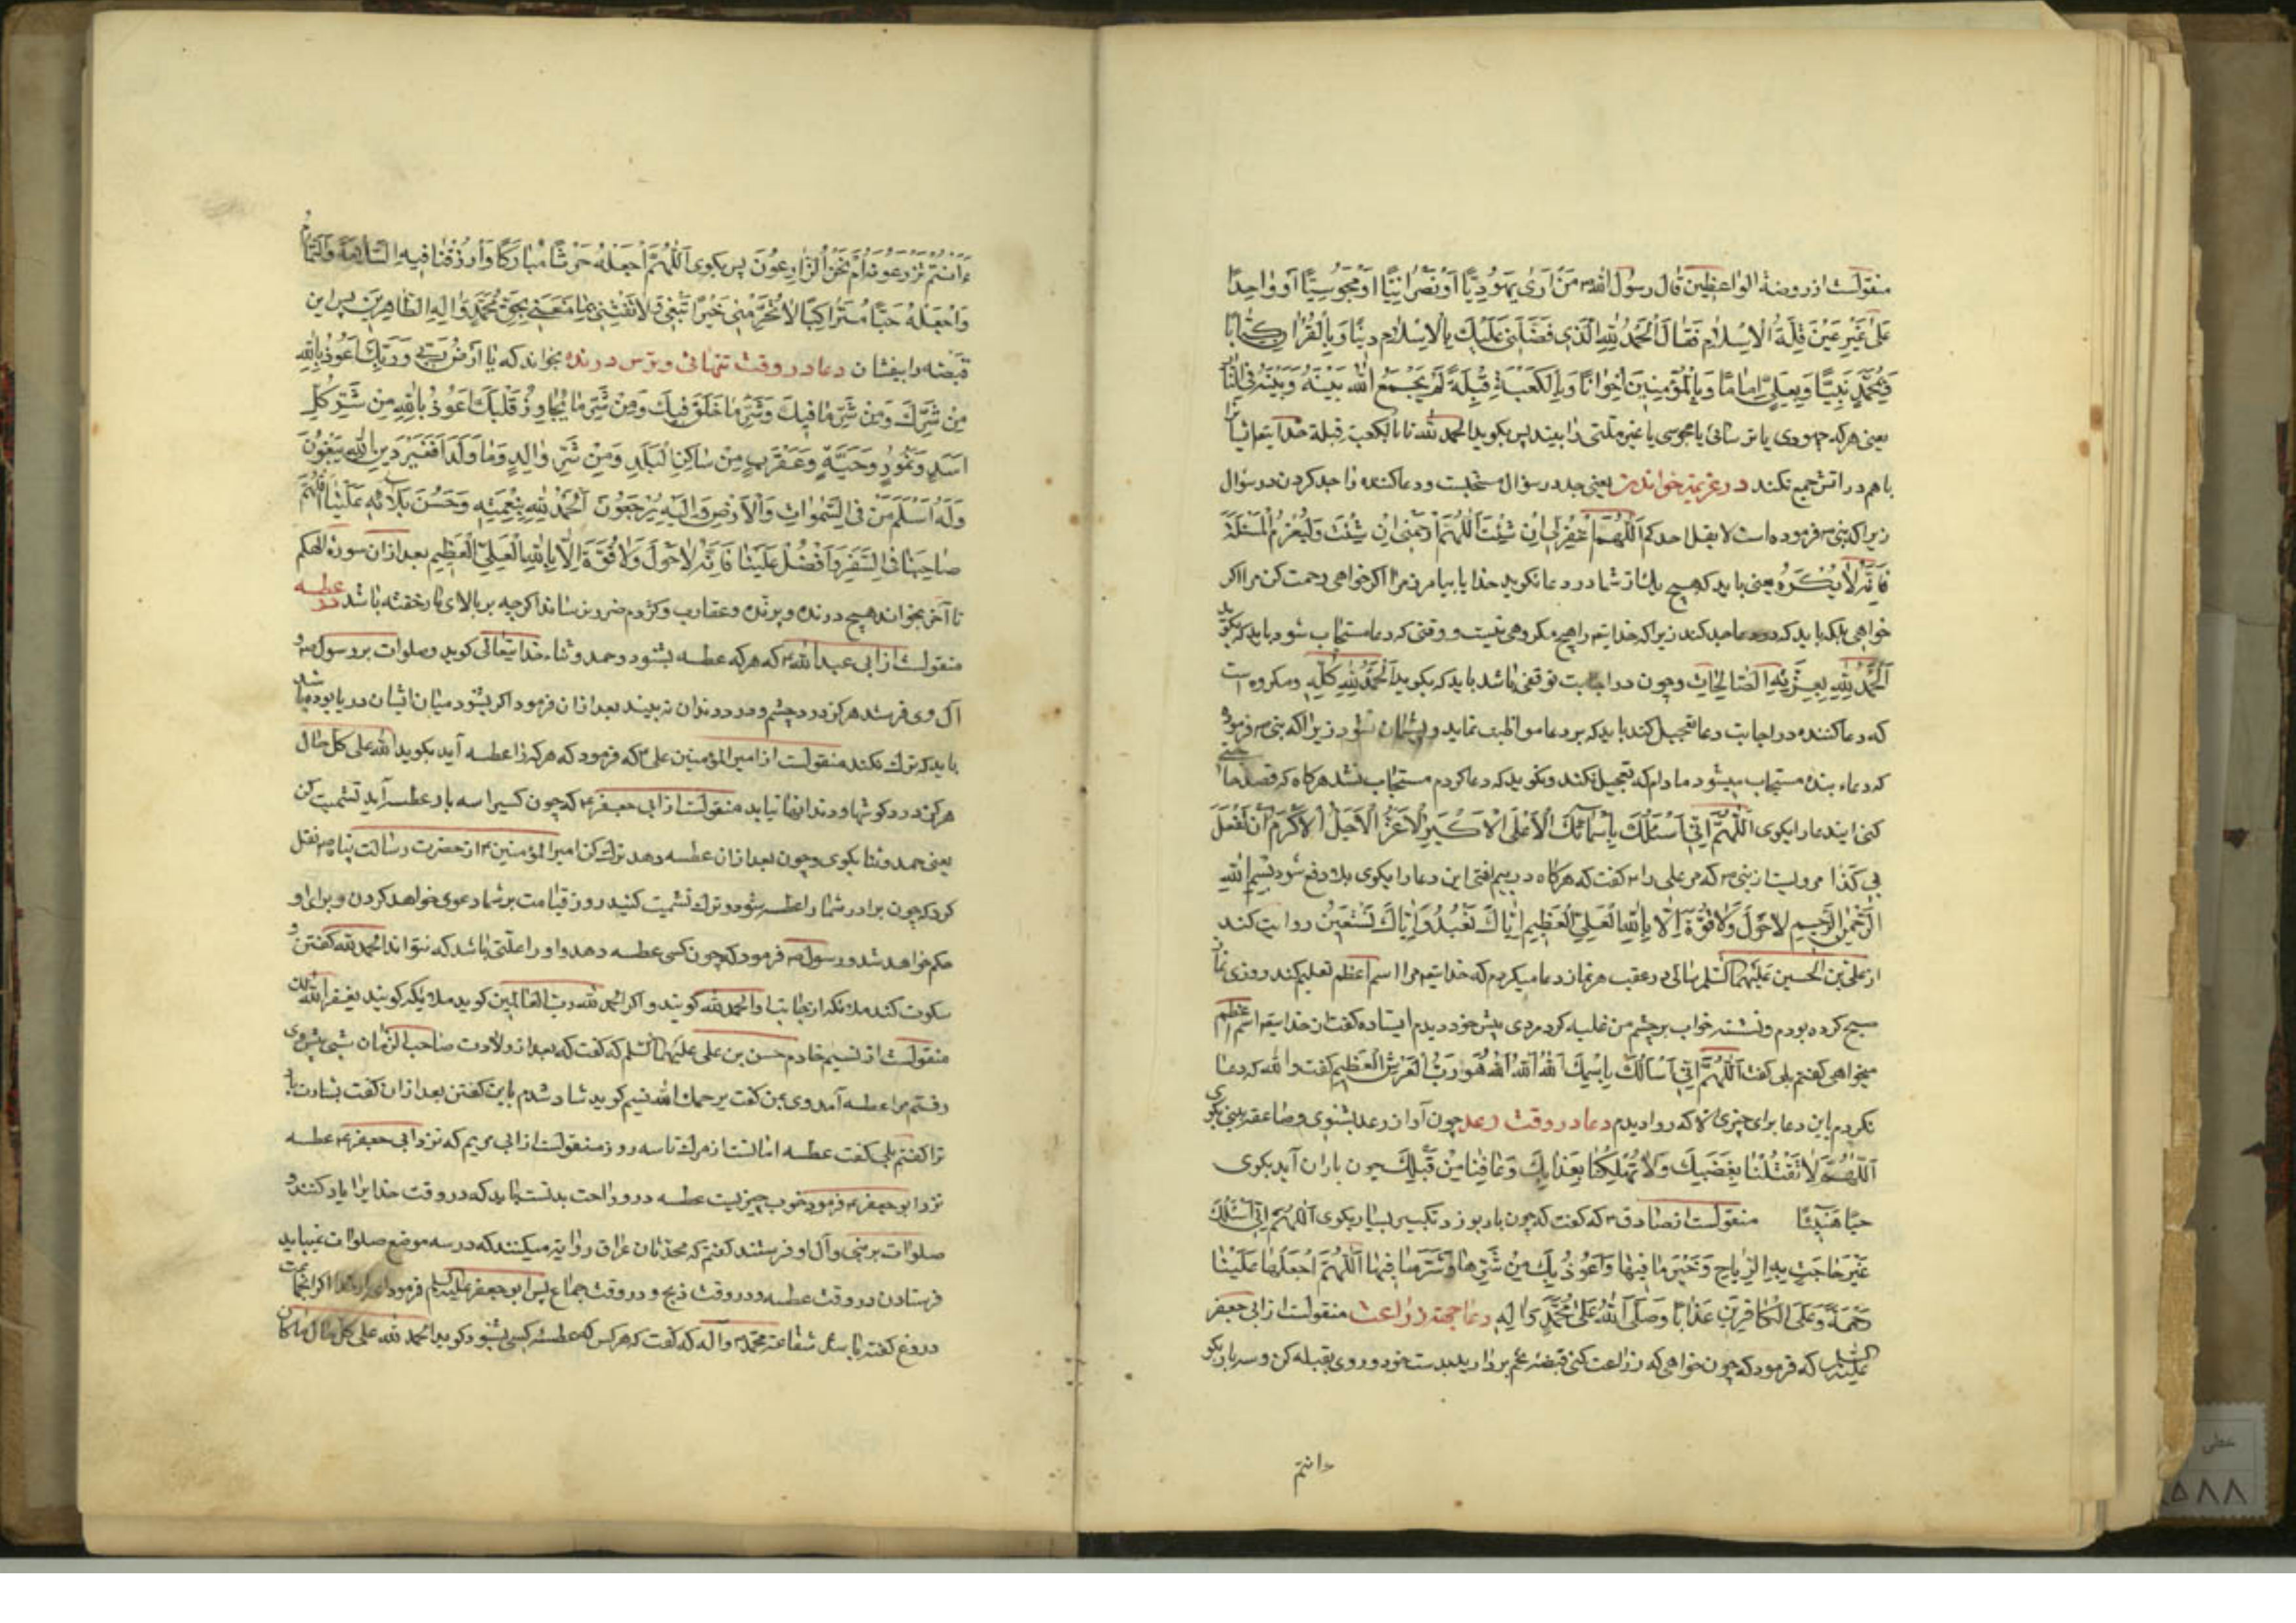 منقولست از روضة الواعظین قال رسول الله ص من رای یهودیّا او نصرانیّا او مجوسیّا او واحدًا
علی غیر عین قلة الاسلام فقال الحمد لله الذی فضّلنی علیك بالاسلام دینًا وبالقران کتابًا
وبمحمّد نبیّا وبعلیّ امامًا وبالمؤمنین اخوانًا وبالکعبة قبلة لم یجمع الله بینه وبینه فی النّار
یعنی هرکه جهودی یا ترسائی یا مجوسی یا غیر ملتی را بیند پس بکوید الحمد لله تا بالکعبة قبلة خدا یتعا ایشانرا
باهم در اتش جمع نکند در عزیمة خواندن یعنی جد در سؤال مستحبست ودعا کننده را جد کردن در سؤال
زیرا که نبی ص فرموده است لا یقل احدکم اللّهمّ اغفر لی ان شئت اللّهمّ ارحمنی ان شئت ولیعزم المسئلة
فانّه لا یکره یعنی باید که هیچ یك از شما در دعا نکوید خدایا بیامرز مرا اکر خواهی رحمت کن مرا اکر
خواهی بلکه باید که در دعا جد کند زیرا که خدا یتع را هیچ مکروهی نیست ووقتی که دعا مستجاب شود باید که بکوید
الحمد لله بعزّته الصّالحات وچون در اجابت توقفی باشد باید که بکوید الحمد لله کلّه ومکروه است
که دعا کننده در اجابت دعا تعجیل کند باید که بر دعا مواظبت نماید وپشیمان نشود زیرا که نبی ص فرموده
که دعاء بنده مستجاب میشود مادام که تعجیل نکند ونکوید که دعا کردم مستجاب نشد هرکاه که قصد حاجتی
کنی ایندعا را بکوی اللّهمّ انّی اسئلك باسمائك الاعلی الاکبر الاعزّ الاجلّ الاکرم ان تفعل
بی کذا مرویست از نبی ص که مر علی را ع کفت که هرکاه در بیم افتی این دعا را بکوی بلا دفع شود بسم الله
الرّحمن الرّحیم لا حول ولا قوّة الّا بالله العلیّ العظیم ایّاك نعبد وایّاك نستعین روایت کند
از علی بن الحسین علیهما السّلم سالی در عقب هر نماز دعا میکردم که خدا یتع مرا اسم اعظم تعلیم کند روزی نماز
صبح کرده بودم ونشسته خواب بر چشم من غلبه کرد مردی پیش خود دیدم ایستاده کفت از خدا یتع اسم اعظم
میخواهی کفتم بلی کفت اللّهمّ انّی اسالك باسمك الله الله الله هو ربّ العرش العظیم کفت والله که دعا
نکردم باین دعا برای چیزی الا که روا دیدم دعا در وقت رعد چون آواز رعد بشنوی وصاعقه بینی بکوی
اللّهمّ لا تقتلنا بغضبك ولا تهلکنا بعذابك وعافنا من قبلك چون باران آید بکوی
حبّا هنیئًا منقولست از صادق ع که کفت که چون باد بوزد تکبیر بسیار بکوی اللّهمّ انّی اسئلك
خیر ما الریاح وخیر ما فیها واعوذ بك من شرّها وشرّ ما فیها اللّهمّ اجعلها علینا
رحمة وعلی الکافرین عذابًا وصلّی الله علی محمّد واله دعا جهة زراعت منقولست از ابی جعفر
علیه السّلم که فرمود که چون خواهی که زراعت کنی قبضۀ تخم بردار بدست خود وروی بقبله کن وسه بار بکو
ءانتم
ءانتم تزرعونه ام نحن الزّارعون پس بکوی اللّهمّ اجعله حرثًا مبارکًا وارزقنا فیه السّلامة والتمام
واجعله حبًّا متراکبًا لا تحرمنی خیرًا تبتغی ولا تفتنّی بما متعتنی بحقّ محمّد واله الطّاهرین پس این
قبضه را بیفشان دعا در وقت تنهائی وترس درنده بخواند که یا ارض ربّی وربّك اعوذ بالله
من شرّك ومن شرّ ما فیك وشرّ ما خلق فیك ومن شرّ ما یجاوز قلبك اعوذ بالله من شرّ کل
اسد ونمود وحیّة وعقرب من ساکن البلد ومن شرّ والد وما ولد افغیر دین الله یبغون
وله اسلم من فی السّموات والارض والیه یرجعون الحمد لله بنعمته وحسن بلائه علینا اللهم
صاحبنا فی السّفر وافضل علینا فانّه لا حول ولا قوّة الّا بالله العلیّ العظیم بعد ازان سورة الهکم
تا آخر بخواند هیچ درنده وپرنده وعقارب وکژدم ضرر نرساند اکرچه بر بالای مار خفته باشد در عطسه
منقولست از ابی عبد الله ع که هرکه عطسه بشنود وحمد وثناء خدا یتعالی کوید وصلوات بر رسول ص و
آل وی فرستد هرکز درد چشم ودرد دندان نه بیند بعد ازان فرمود اکر بشنود میان ایشان دریا بوده باشد
باید که ترك نکند منقولست از امیر المؤمنین علی ع که فرمود که هرکه را عطسه آید بکوید لله علی کل حال
هرکز درد کوشها ودندانها نیابد منقولست از ابی جعفر ع که چون کسی را سه بار عطسه آید تشمیت کن
یعنی حمد وثنا بکوی وچون بعد ازان عطسه دهد ترك کن امیر المؤمنین ع از حضرت رسالت پناه ص نقل
کرد که چون برادر شما را عطسه شود وترك تشمیت کنید روز قیامت بر شما دعوی خواهد کردن وبرای او
حکم خواهد شد ورسول ص فرمود که چون کسی عطسه دهد واو را علتی باشد که نتواند الحمد لله کفتن و
سکوت کند ملائکه از بجانب او الحمد لله کویند واکر الحمد لله ربّ العالمین کوید ملائکه کویند یغفر الله لك
منقولست از نسیم خادم حسن بن علی علیهما السّلم که کفت که بعد از ولادت صاحب الزّمان شبی پیش وی
رفتم مرا عطسه آمد وی بمن کفت یرحمك الله نسیم کوید شاد شدم باین کفتن بعد ازان کفت بشارت باد
ترا کفتم بلی کفت عطسه امانست از مرك تا سه روز منقولست از ابی مریم که نزد ابی جعفر ع عطسه
نزد ابو جعفر ع فرمود خوب چیزیست عطسه درو راحت بدنست باید که در وقت خدا یرا یاد کنند و
صلوات بر نبی وآل او فرستند کفتم که محدثان عراق روایة میکنند که در سه موضع صلوات نمیباید
فرستادن در وقت عطسه ودر وقت ذبح ودر وقت جماع پس ابو جعفر علیه السّلم فرمود
دروغ کفته باشد شفاعة محمّد ص وآله که کفت که هرکس که عطسه کسی بشنود کوید الحمد لله علی کل حال ما کان
خطی
۵۸۸